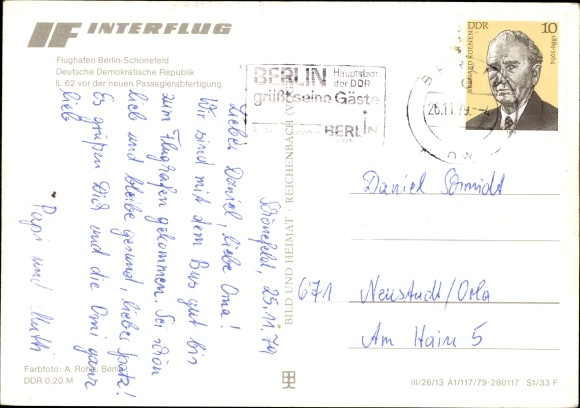 IF INTERFLUG
Flughafen Berlin-Schönefeld
Deutsche Demokratische Republik
IL 62 vor der neuen Passagierabfertigung
BERLIN Hauptstadt
der DDR
grüßt seine Gäste
BERLIN
26.11.79.-4
DDR 10
BERNARD KOENEN
1889-1964
Schönefeld, 25.11.79
Lieber Daniel, liebe Oma!
Wir sind mit dem Bus gut bis
zum Flughafen gekommen. Sei schön
lieb und bleibe gesund, lieber Spatz!
Es grüßen Dich und die Omi ganz
lieb
Papi und Mutti
BILD UND HEIMAT · REICHENBACH (V
Daniel Schmidt
671 Neustadt/Orla
Am Hain 5
Farbfoto: A. Berlin
DDR 0,20 M
III/26/13 A1/117/79-280117 S1/33 F